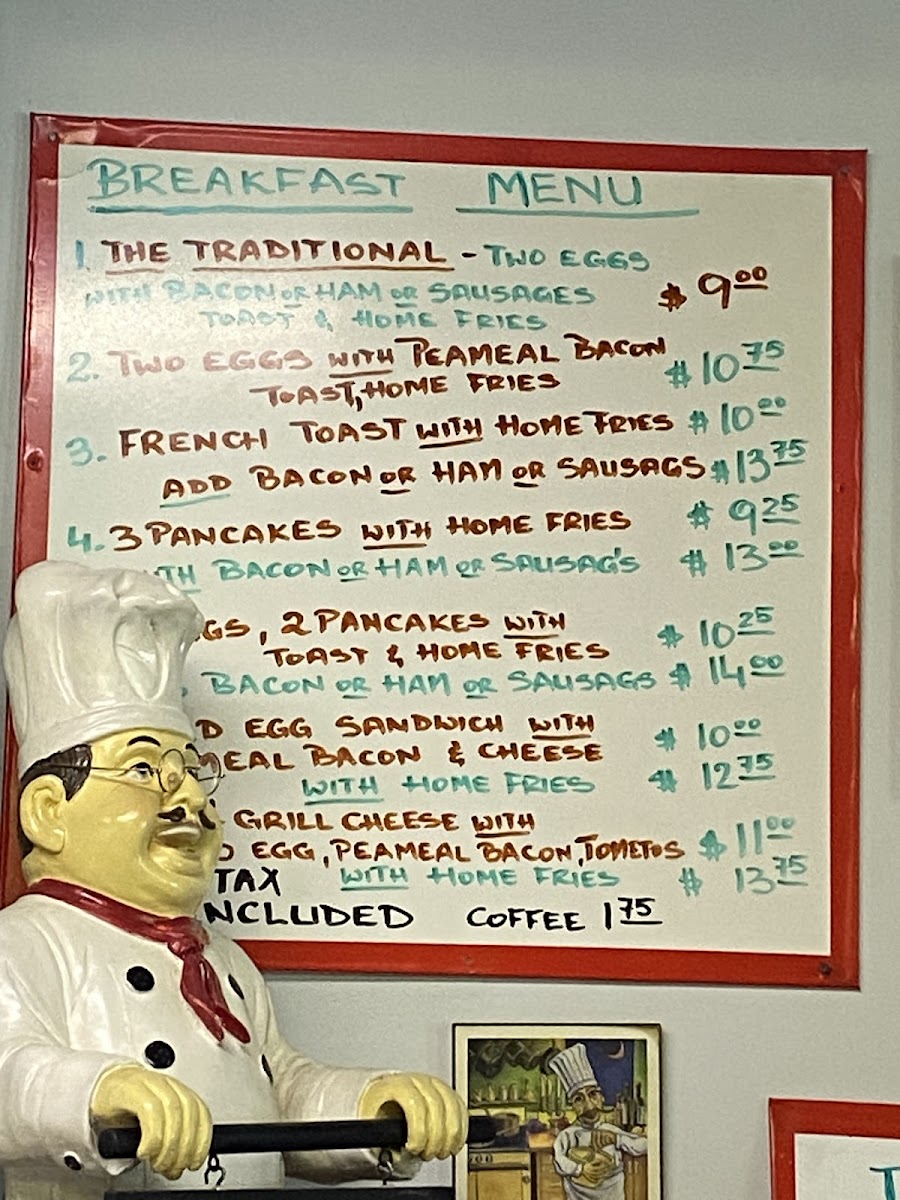 BREAKFAST MENU
1. THE TRADITIONAL - TWO EGGS
WITH BACON OR HAM OR SAUSAGES $ 9.00
TOAST & HOME FRIES
2. TWO EGGS WITH PEAMEAL BACON $ 10.75
TOAST, HOME FRIES
3. FRENCH TOAST WITH HOME FRIES $ 10.00
ADD BACON OR HAM OR SAUSAGS $ 13.75
4. 3 PANCAKES WITH HOME FRIES $ 9.25
BACON OR HAM OR SAUSAG'S $ 13.00
, 2 PANCAKES WITH $ 10.25
TOAST & HOME FRIES
BACON OR HAM OR SAUSAGS $ 14.00
EGG SANDWICH WITH $ 10.00
BACON & CHEESE
WITH HOME FRIES $ 12.75
GRILL CHEESE WITH
EGG, PEAMEAL BACON, TOMETOS $ 11.00
WITH HOME FRIES $ 13.75
TAX
NCLUDED COFFEE 1.75